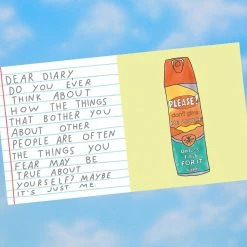 DEAR DIARY,
DO YOU EVER
THINK ABOUT
HOW THE THINGS
THAT BOTHER YOU
ABOUT OTHER
PEOPLE ARE OFTEN
THE THINGS YOU
FEAR MAY BE
TRUE ABOUT
YOURSELF? MAYBE
IT'S JUST ME.
PLEASE!
don't give
FOR IT